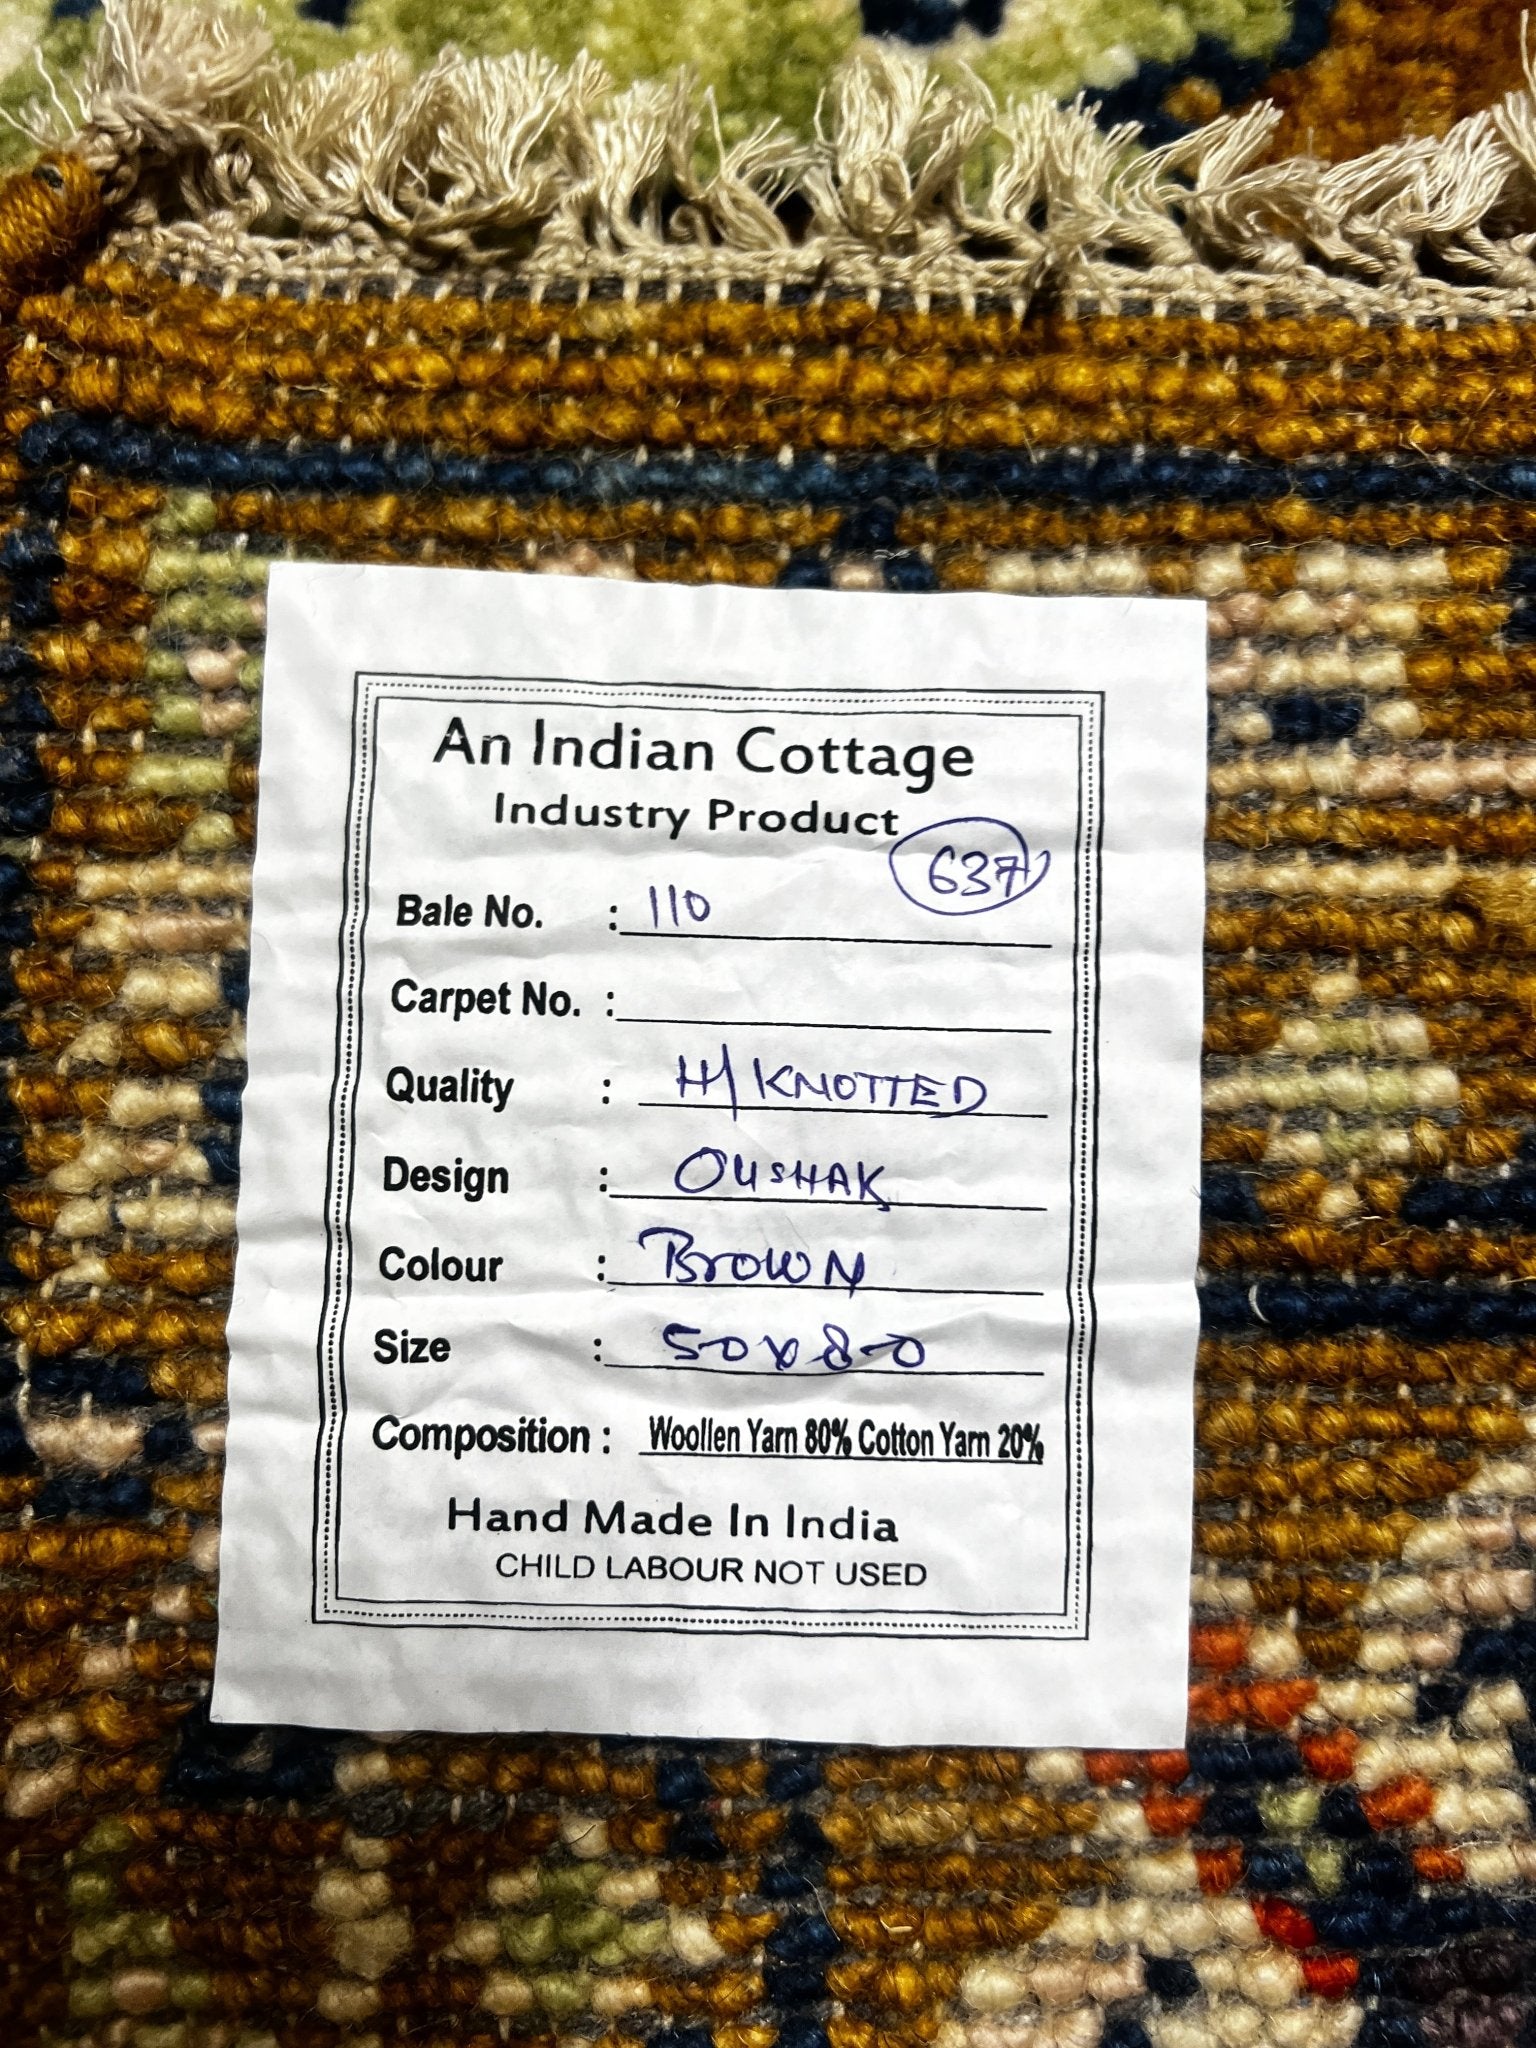 An Indian Cottage
Industry Product
637
Bale No. : 110
Carpet No. :
Quality : H/KNOTTED
Design : OUSHAK
Colour : BROWN
Size : 50x80
Composition : Woollen Yarn 80% Cotton Yarn 20%
Hand Made In India
CHILD LABOUR NOT USED